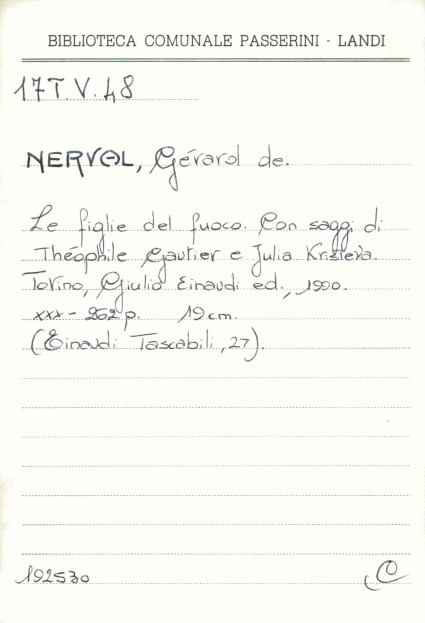 BIBLIOTECA COMUNALE PASSERINI - LANDI
17 T. V. 48
NERVAL, Gérard de.
Le figlie del fuoco. Con saggi di
Théophile Gautier e Julia Kristeva.
Torino, Giulio Einaudi ed., 1990.
XXX - 262 p. 19 cm.
(Einaudi Tascabili, 27).
192530